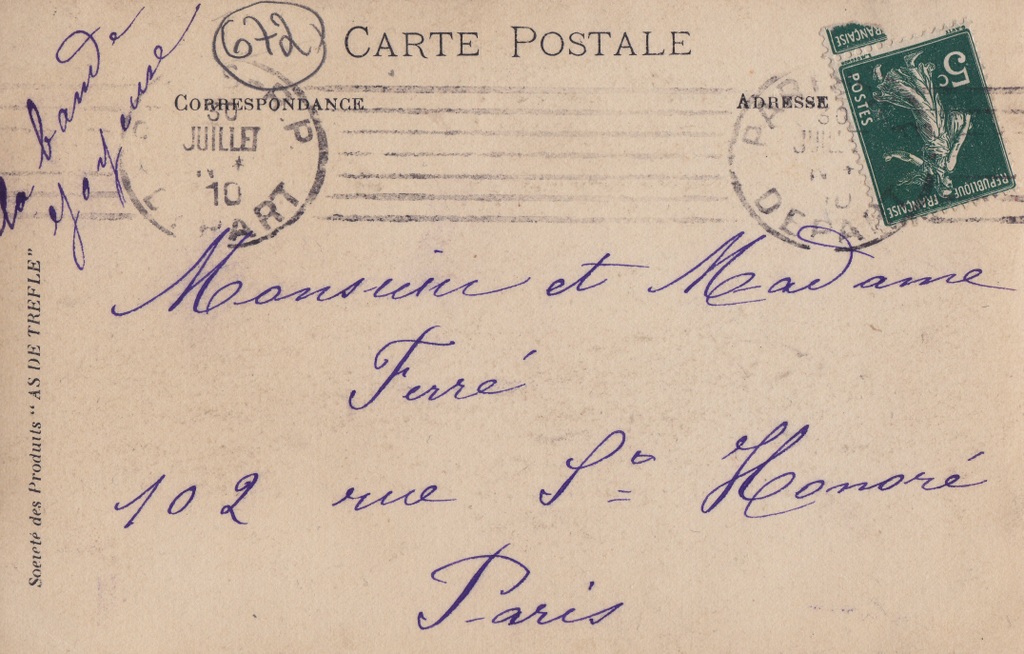 la bande
joyeuse
672
CARTE POSTALE
CORRESPONDANCE
ADRESSE
30
JUILLET
10
DEPART
PARIS
30
JUILLET
10
DEPART
FRANÇAISE
5c
POSTES
RÉPUBLIQUE FRANÇAISE
Monsieur et Madame
Ferré
102 rue St Honoré
Paris
Société des Produits "AS DE TREFLE"